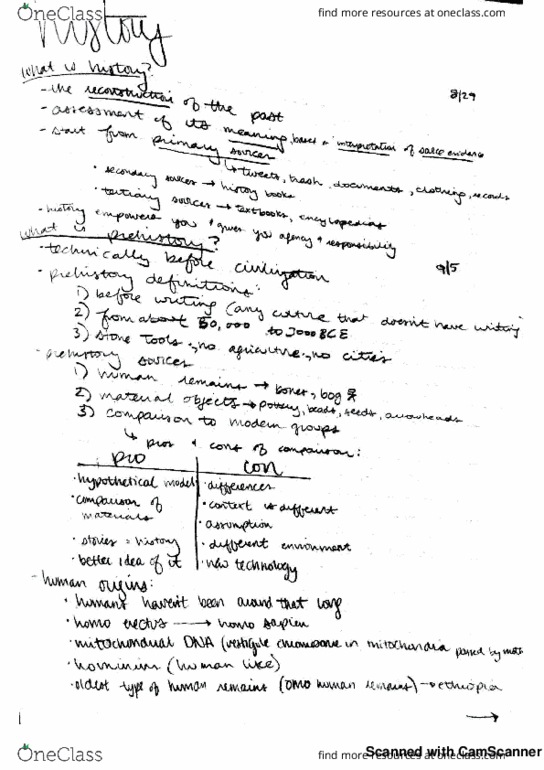 OneClass
find more resources at oneclass.com
history
What is history?
8/29
- the reconstruction of the past
- assessment of its meaning, based on interpretation of source evidence
- start from primary sources
↳ tweets, trash, documents, clothing, records
• secondary sources → history books
• tertiary sources → textbooks, encyclopedias
- history empowers you + gives you agency + responsibility
What is prehistory?
9/5
• technically before civilization
• prehistory definitions:
1) before writing (any culture that doesn't have writing)
2) from about 50,000 to 3000 BCE
3) stone tools, no agriculture, no cities
- prehistory sources
1) human remains → bones, bog
2) material objects → pottery, beads, seeds, arrowheads
3) comparison to modern groups
↳ pros + cons of comparison:
PRO
CON
• hypothetical model
• differences
• comparison of materials
• context is different
• assumption
• stories = history
• different environment
• better idea of it
• new technology
- human origins:
• humans haven't been around that long
• homo erectus → homo sapien
• mitochondrial DNA (vestigile chromosome in mitochondria passed by
• hominins (human like)
• oldest type of human remains (omo human remains) → ethiopia
→
OneClass
find more resources at oneclass.com
Scanned with CamScanner